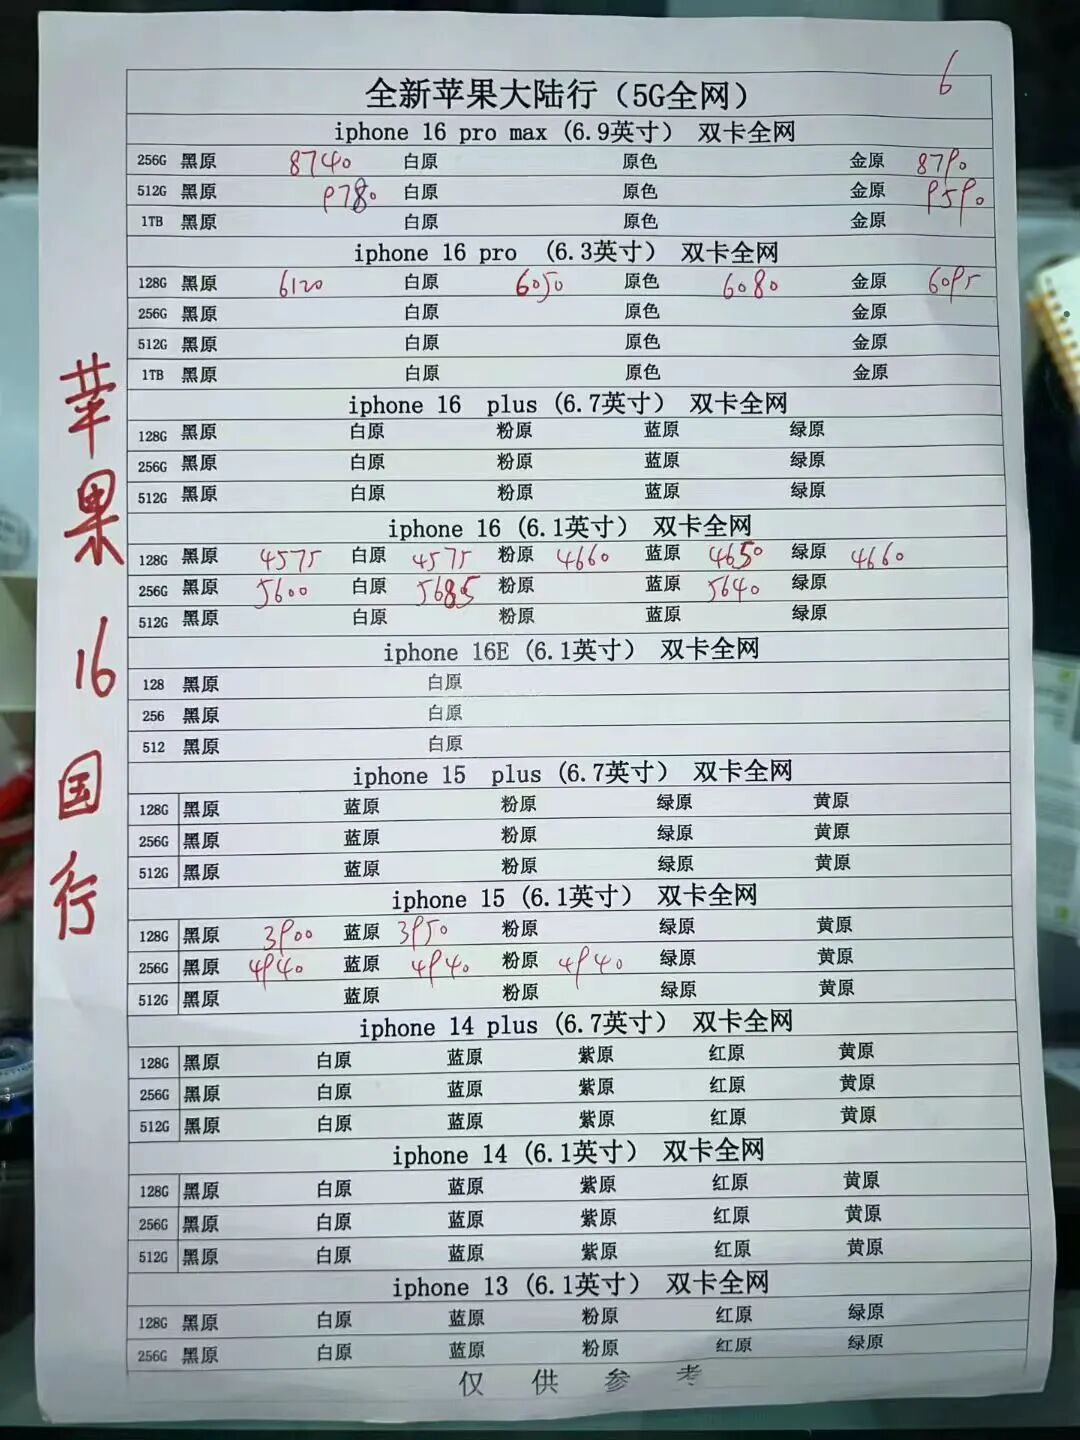 6
全新苹果大陆行（5G全网）
iphone 16 pro max (6.9英寸） 双卡全网
256G 黑原 8740 白原 原色 金原 8790
512G 黑原 9780 白原 原色 金原 9590
1TB 黑原 白原 原色 金原
iphone 16 pro （6.3英寸） 双卡全网
128G 黑原 6120 白原 6050 原色 6080 金原 6095
256G 黑原 白原 原色 金原
512G 黑原 白原 原色 金原
1TB 黑原 白原 原色 金原
iphone 16 plus (6.7英寸） 双卡全网
128G 黑原 白原 粉原 蓝原 绿原
256G 黑原 白原 粉原 蓝原 绿原
512G 黑原 白原 粉原 蓝原 绿原
iphone 16 (6.1英寸） 双卡全网
128G 黑原 4575 白原 4575 粉原 4660 蓝原 4650 绿原 4660
256G 黑原 5600 白原 5685 粉原 蓝原 5640 绿原
512G 黑原 白原 粉原 蓝原 绿原
iphone 16E (6.1英寸） 双卡全网
128 黑原 白原
256 黑原 白原
512 黑原 白原
iphone 15 plus (6.7英寸） 双卡全网
128G 黑原 蓝原 粉原 绿原 黄原
256G 黑原 蓝原 粉原 绿原 黄原
512G 黑原 蓝原 粉原 绿原 黄原
iphone 15 (6.1英寸） 双卡全网
128G 黑原 3900 蓝原 3950 粉原 绿原 黄原
256G 黑原 4940 蓝原 4940 粉原 4940 绿原 黄原
512G 黑原 蓝原 粉原 绿原 黄原
iphone 14 plus (6.7英寸） 双卡全网
128G 黑原 白原 蓝原 紫原 红原 黄原
256G 黑原 白原 蓝原 紫原 红原 黄原
512G 黑原 白原 蓝原 紫原 红原 黄原
iphone 14 (6.1英寸） 双卡全网
128G 黑原 白原 蓝原 紫原 红原 黄原
256G 黑原 白原 蓝原 紫原 红原 黄原
512G 黑原 白原 蓝原 紫原 红原 黄原
iphone 13 (6.1英寸） 双卡全网
128G 黑原 白原 蓝原 粉原 红原 绿原
256G 黑原 白原 蓝原 粉原 红原 绿原
仅供参考
苹果16国行